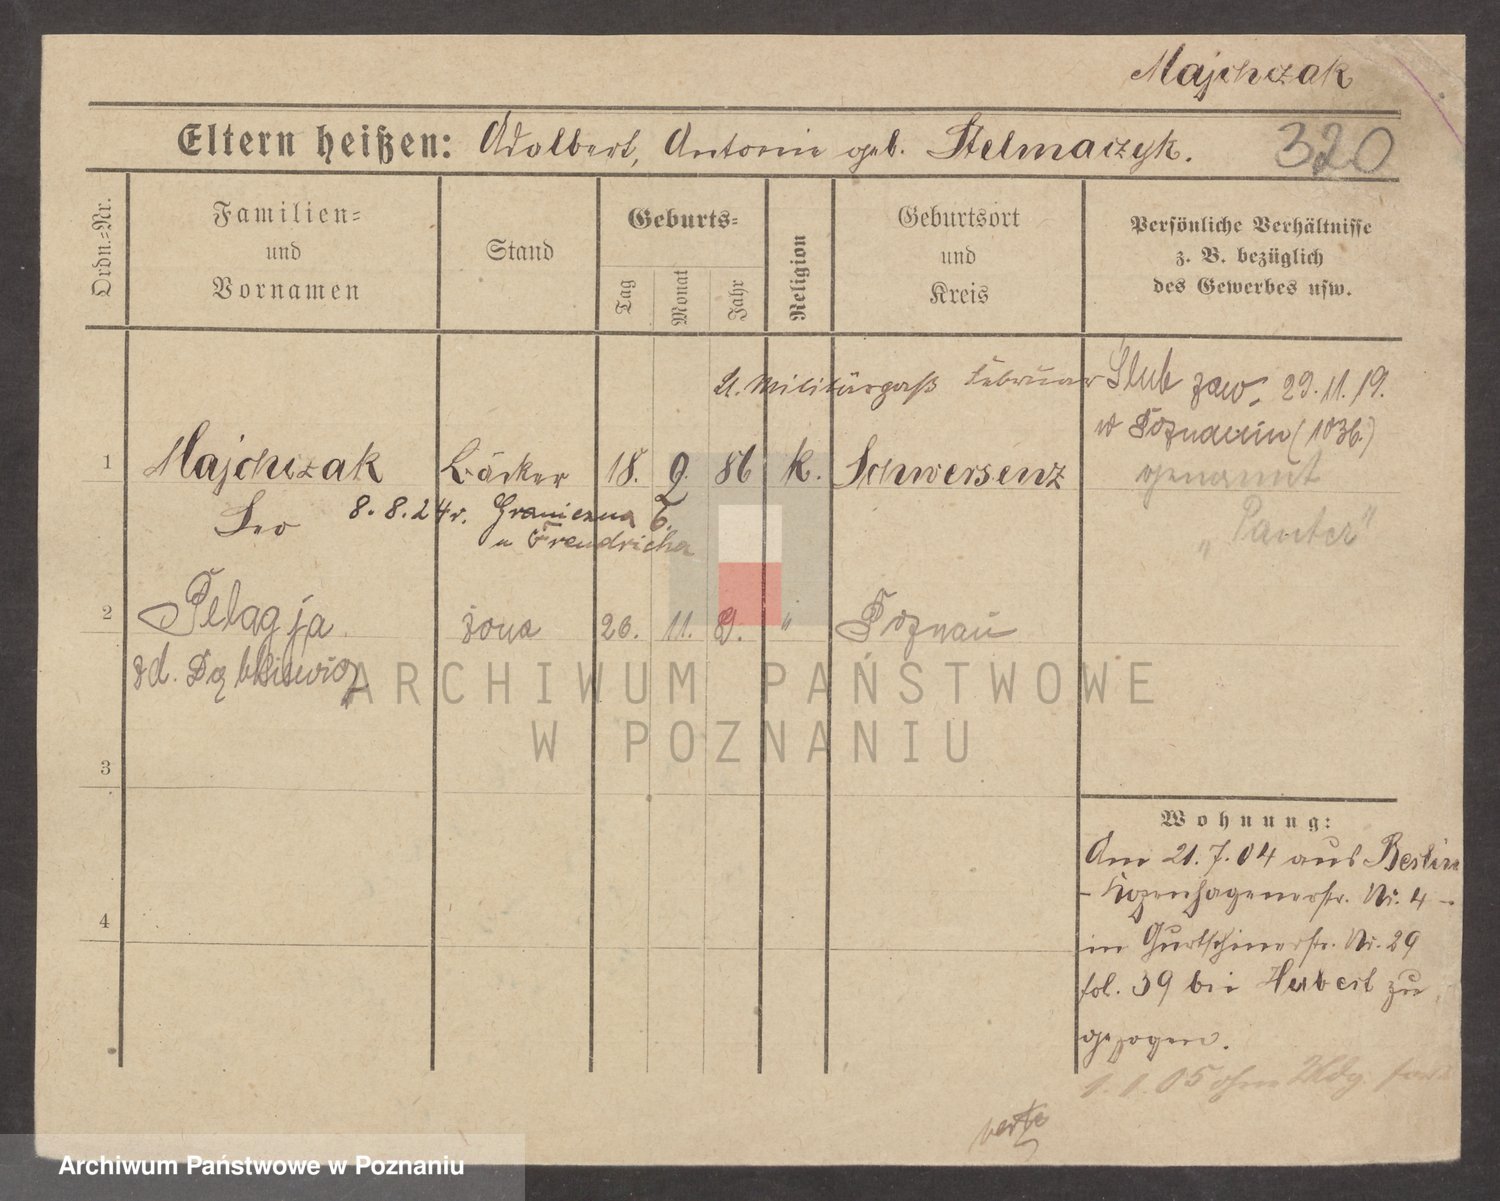 Majchczak
Eltern heißen: Adalbert, Antonie geb. Stelmaczyk.
320
Ordn.=Nr.
Familien=
und
Vornamen
Stand
Geburts=
Tag
Monat
Jahr
Religion
Geburtsort
und
Kreis
Persönliche Verhältnisse
z. B. bezüglich
des Gewerbes usw.
lt. Militärpaß Februar
Ślub zaw. 29.11.19.
w Poznaniu (1036.)
1 Majchczak Bäcker 18. 9. 86 k. Schwersenz
genannt
Leo
8. 8. 24 r. Graniczna 6.
u Frendricha
„Panter"
2 Pelagja żona 26. 11. 91. " Poznań
zd. Dąbkiewicz
3
4
Wohnung:
Am 21.7.04 aus Berlin
- Kopenhagenerstr. Nr. 4 -
in Gurtschinerstr. Nr. 29
fol. 39 bei Hubert zu
gezogen.
1. 1. 05 ohne Mldg. fort
verte
ARCHIWUM PAŃSTWOWE
W POZNANIU
Archiwum Państwowe w Poznaniu